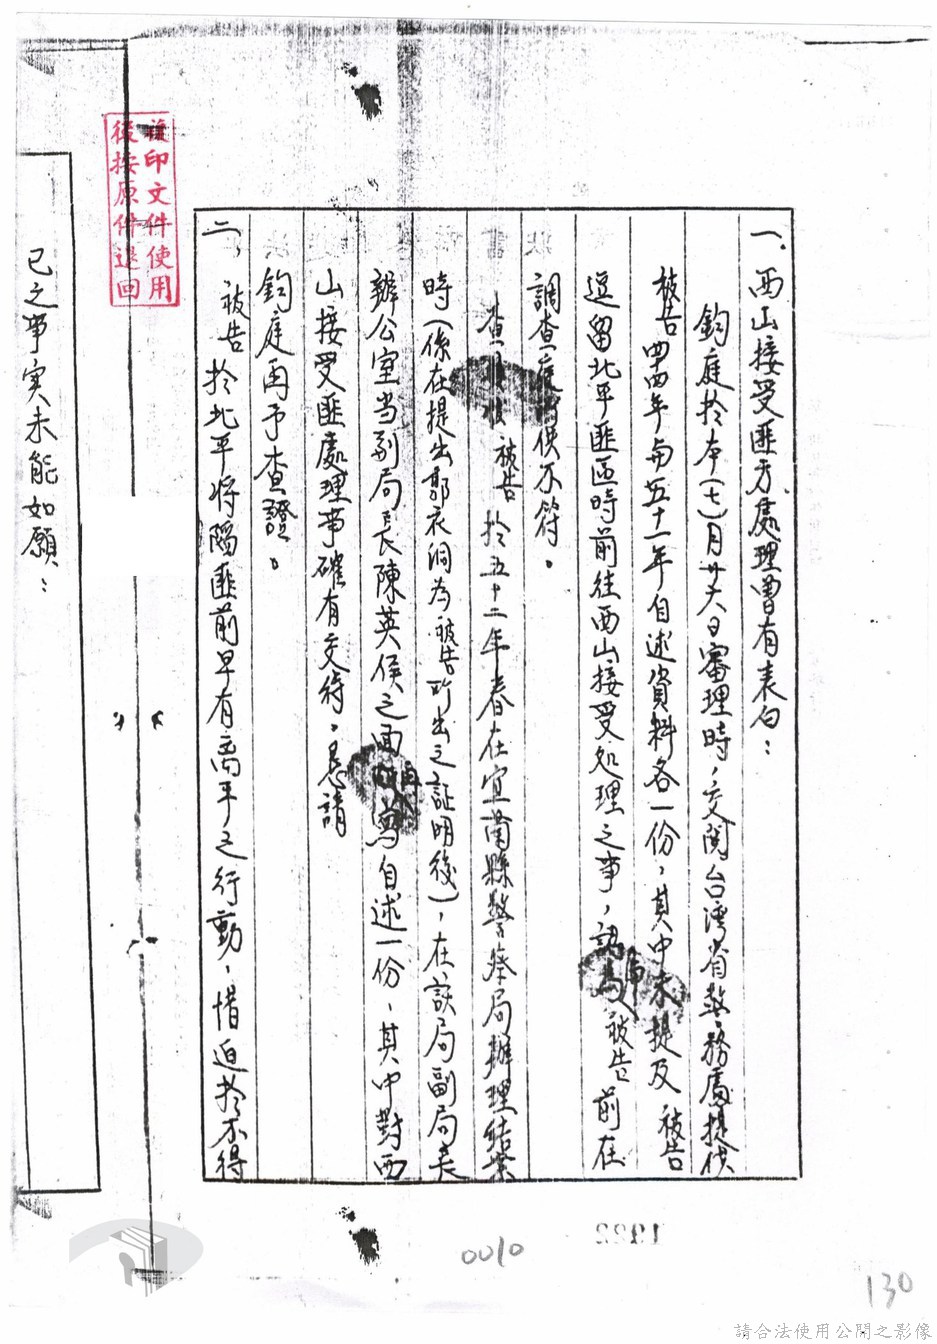 一、西山接受匪方處理曾有表白：
鈞庭於本（七）月廿六日審理時，交閱台灣省警務處提供
被告四四年與五十一年自述資料各一份，其中未提及被告
逗留北平匪區時前往西山接受処理之事，認為被告前在
調查庭所供不符。
查 被告於五十二年春在宜蘭縣警察局辦理結業
時（係在提出郭衣洞為被告所出之証明後），在該局副局長
辦公室当副局長陳英侯之面 寫自述一份，其中對西
山接受匪處理事確有交待，懇請
鈞庭函予查證。
二、被告於北平將陷匪前早有离平之行動，惜迫於不得
已之事实未能如願：
複印文件使用
後按原件退回
0010
1922
130
請合法使用公開之影像